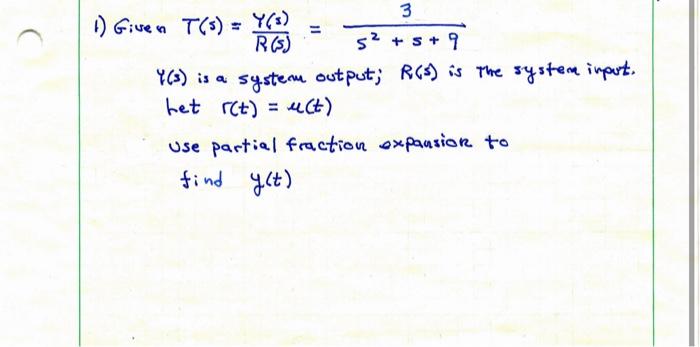 1) Given T(s) = Y(s)/R(s) = 3/(s² + s + 9)
Y(s) is a system output; R(s) is the system input.
Let r(t) = u(t)
use partial fraction expansion to
find y(t)